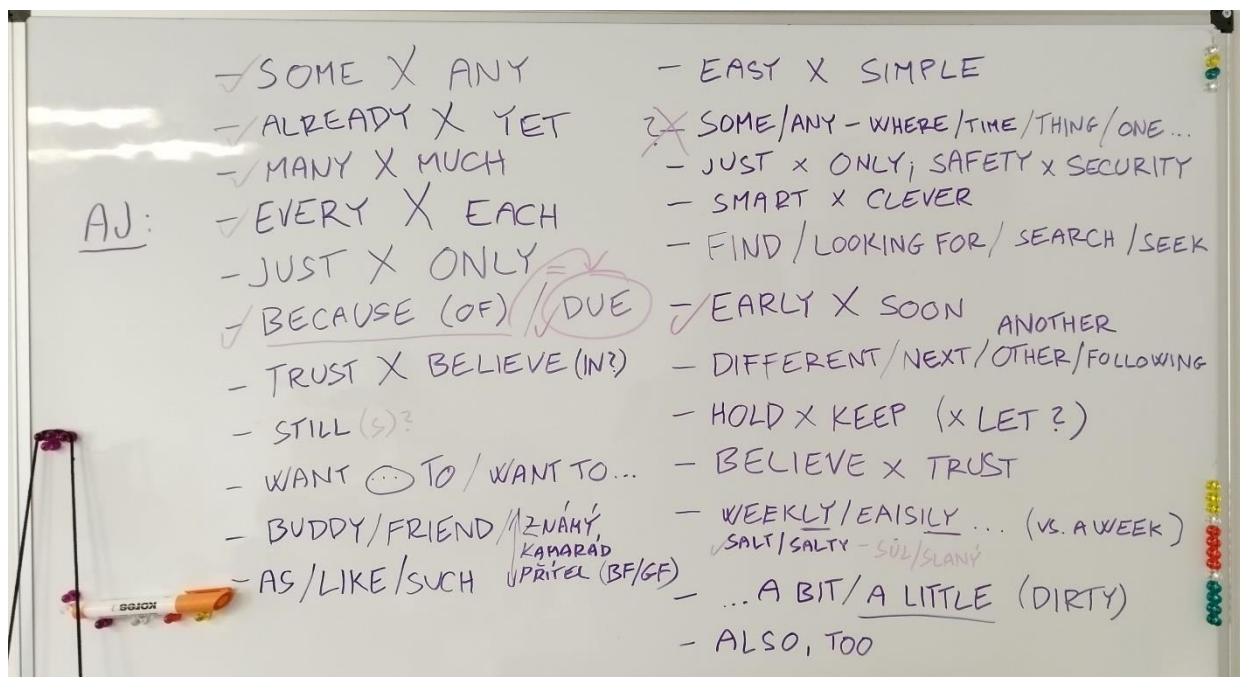 AJ:
- SOME X ANY
- ALREADY X YET
- MANY X MUCH
- EVERY X EACH
- JUST X ONLY
- BECAUSE (OF) / DUE
- TRUST X BELIEVE (IN?)
- STILL (S)?
- WANT ... TO / WANT TO...
- BUDDY/FRIEND/ZNÁMÝ,
KAMARÁD
PŘÍTEL (BF/GF)
- AS/LIKE/SUCH
KORES
- EASY X SIMPLE
?- SOME/ANY - WHERE/TIME/THING/ONE...
- JUST x ONLY; SAFETY x SECURITY
- SMART x CLEVER
- FIND / LOOKING FOR / SEARCH / SEEK
- EARLY X SOON
ANOTHER
- DIFFERENT/NEXT/OTHER/FOLLOWING
- HOLD X KEEP (X LET?)
- BELIEVE x TRUST
- WEEKLY/EAISILY ... (VS. A WEEK)
SALT/SALTY - SŮL/SLANÝ
- ...A BIT/A LITTLE (DIRTY)
- ALSO, TOO